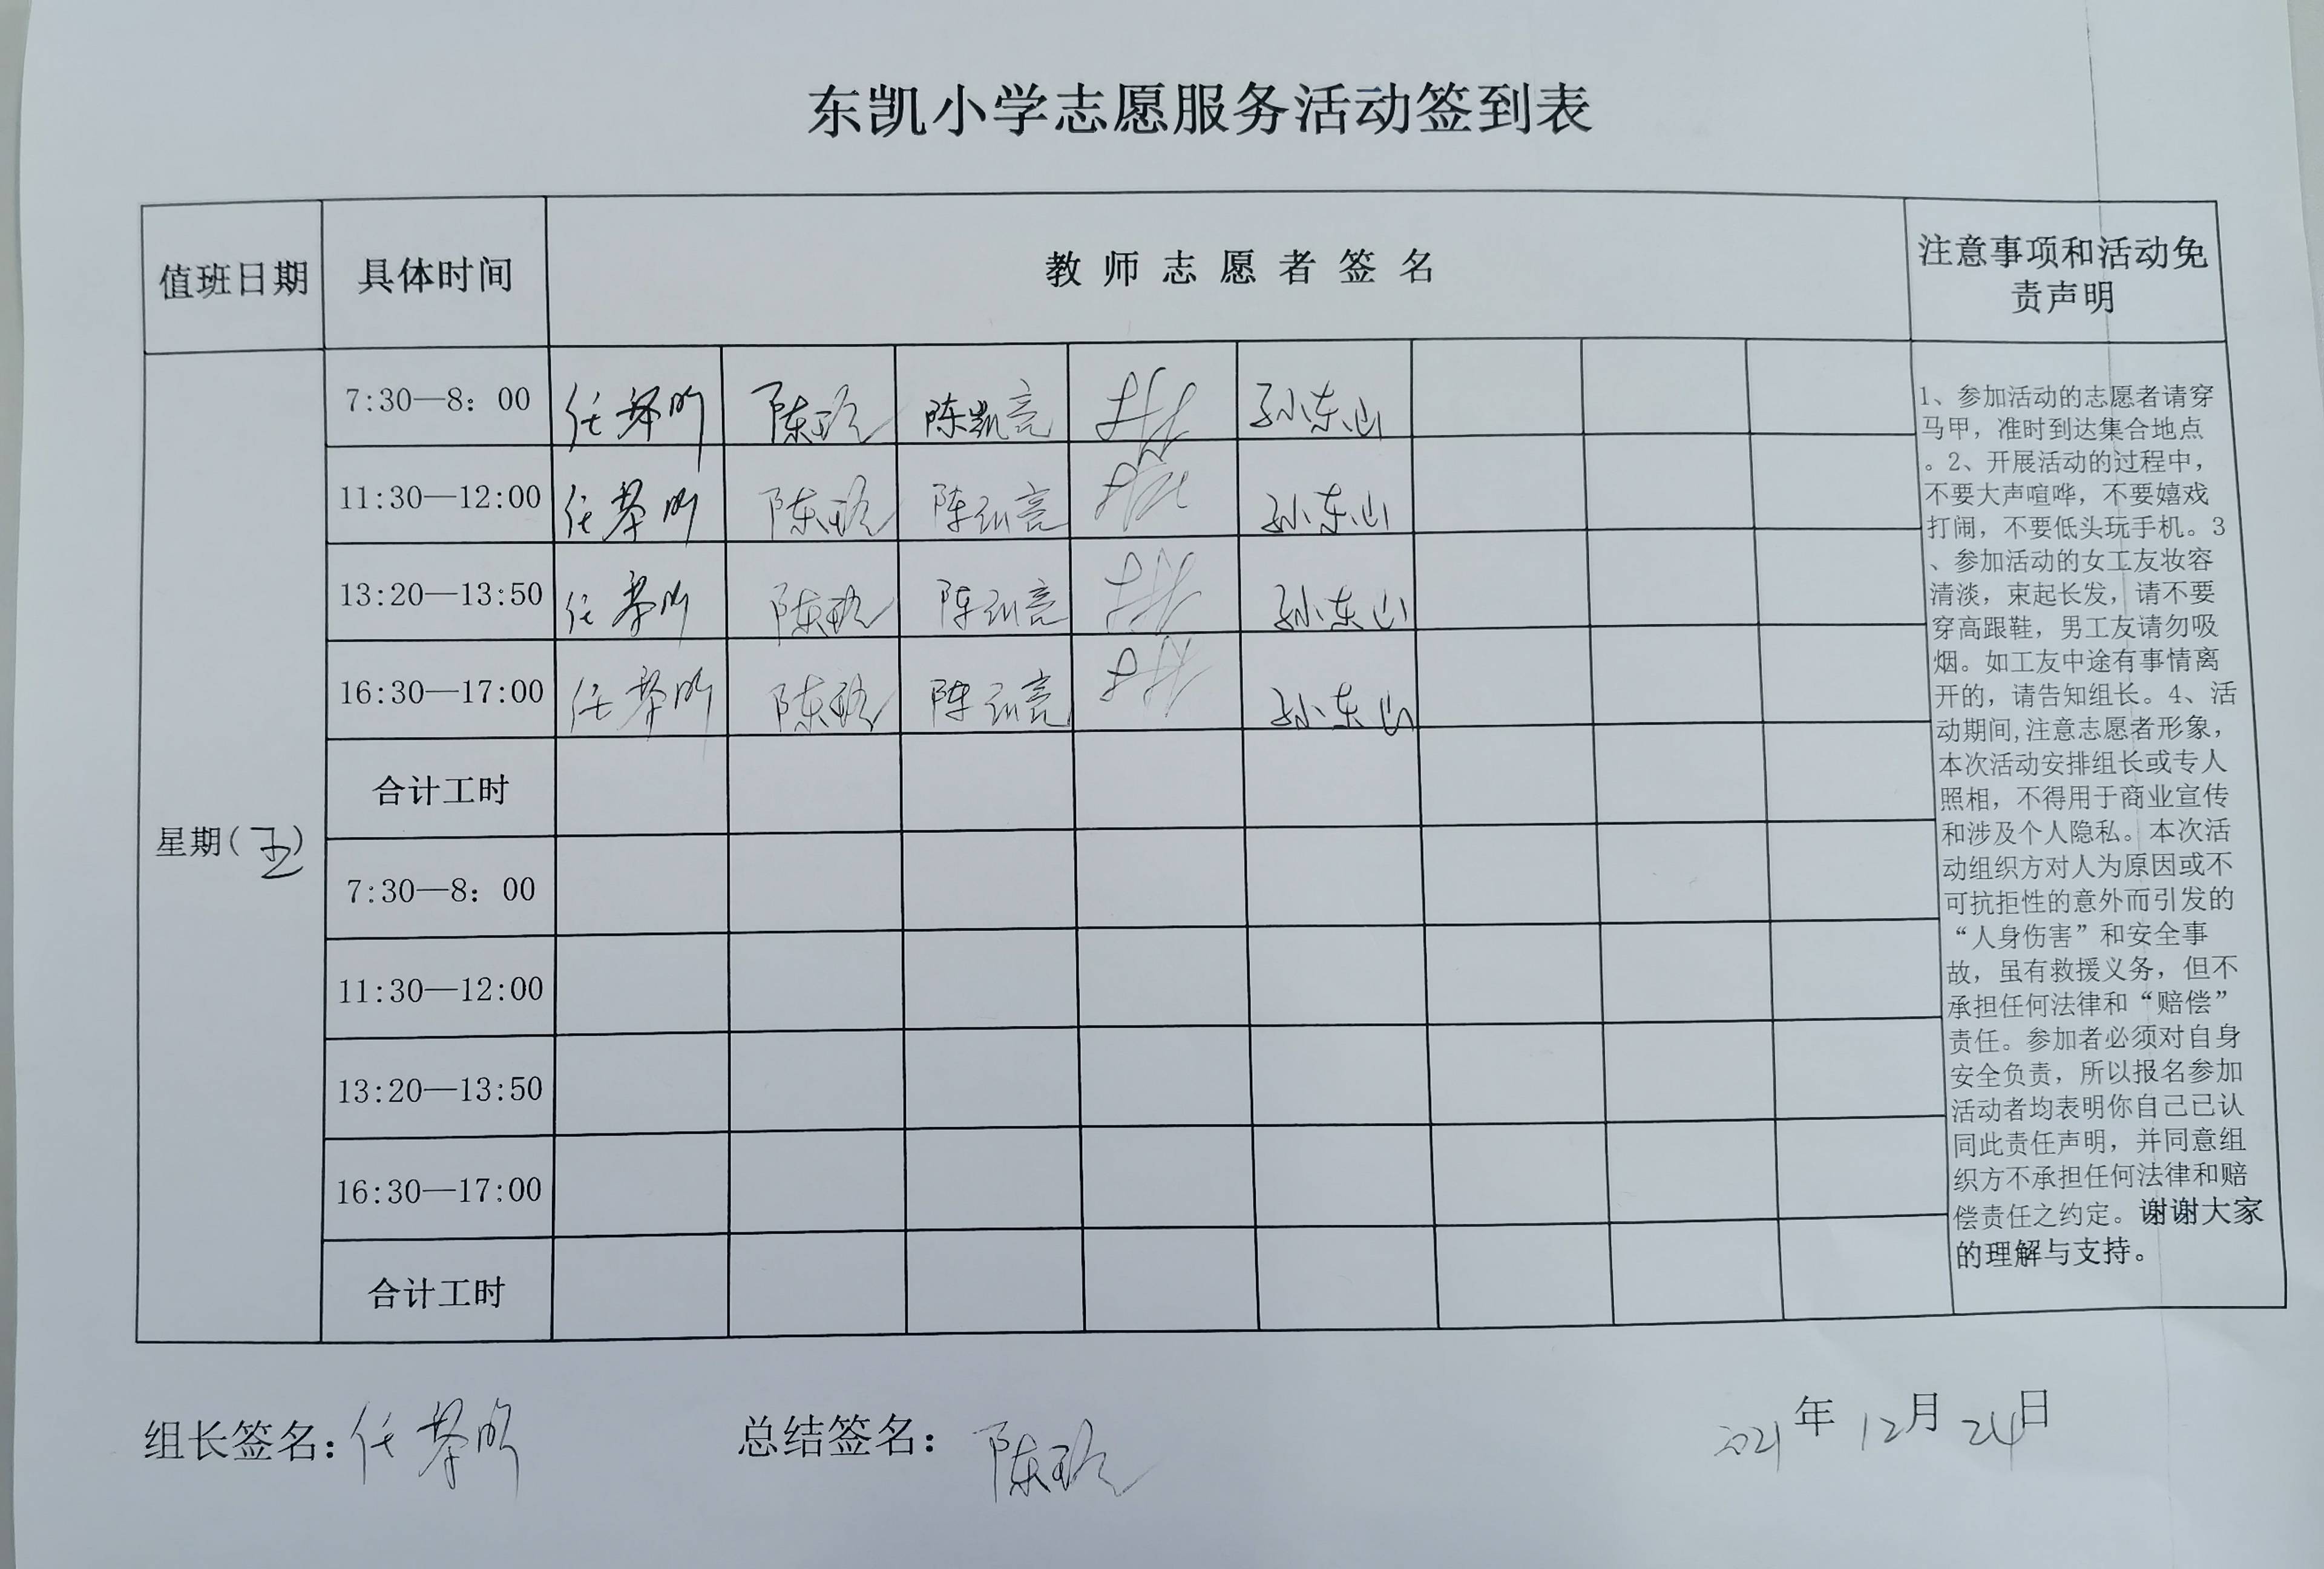 东凯小学志愿服务活动签到表
值班日期 具体时间 教师志愿者签名 注意事项和活动免
责声明
星期(五)
7:30—8：00 陈凯亮 孙东山
11:30—12:00 孙东山
13:20—13:50 孙东山
16:30—17:00 孙东山
合计工时
7:30—8：00
11:30—12:00
13:20—13:50
16:30—17:00
合计工时
1、参加活动的志愿者请穿
马甲，准时到达集合地点
。2、开展活动的过程中，
不要大声喧哗，不要嬉戏
打闹，不要低头玩手机。3
、参加活动的女工友妆容
清淡，束起长发，请不要
穿高跟鞋，男工友请勿吸
烟。如工友中途有事情离
开的，请告知组长。4、活
动期间,注意志愿者形象，
本次活动安排组长或专人
照相，不得用于商业宣传
和涉及个人隐私。本次活
动组织方对人为原因或不
可抗拒性的意外而引发的
“人身伤害”和安全事
故，虽有救援义务，但不
承担任何法律和“赔偿”
责任。参加者必须对自身
安全负责，所以报名参加
活动者均表明你自己已认
同此责任声明，并同意组
织方不承担任何法律和赔
偿责任之约定。谢谢大家
的理解与支持。
组长签名： 总结签名： 2021年12月24日